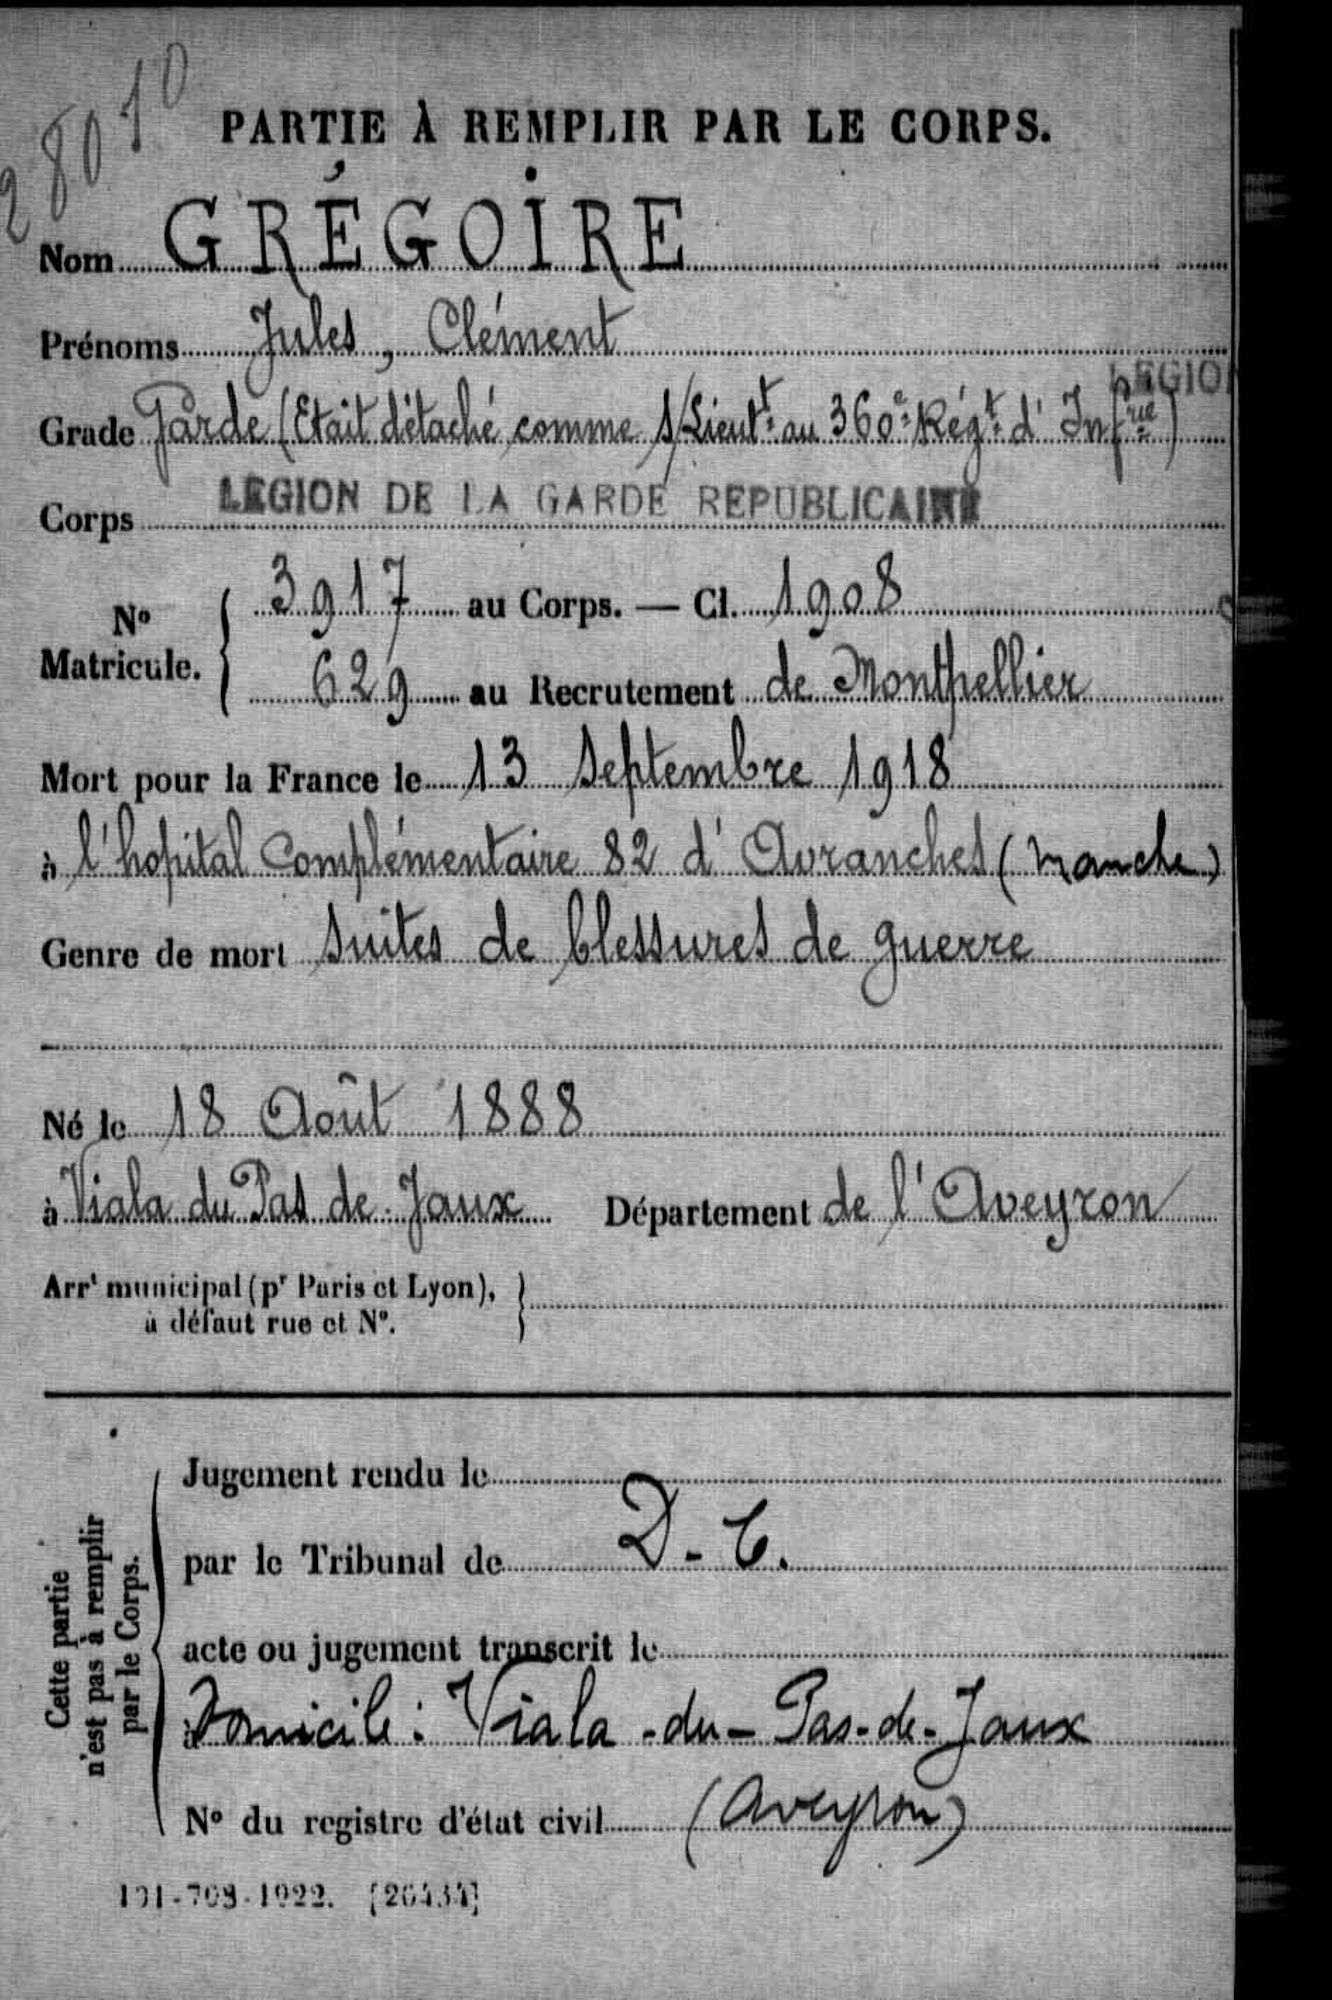 28010
PARTIE À REMPLIR PAR LE CORPS.
Nom GRÉGOIRE
Prénoms Jules, Clément
LEGION
Grade Garde (Etait détaché comme S/Lieut.t au 360e Rég.t d'Inf.rie)
Corps LEGION DE LA GARDE REPUBLICAINE
No Matricule. { 3917 au Corps. — Cl. 1908
629 au Recrutement de Montpellier
Mort pour la France le 13 Septembre 1918
à l'hopital Complémentaire 82 d'Avranches (Manche)
Genre de mort Suites de blessures de guerre
Né le 18 Août 1888
à Viala du Pas de Jaux Département de l'Aveyron
Arrt municipal (pr Paris et Lyon), }
à défaut rue et No.
Cette partie
n'est pas à remplir
par le Corps.
Jugement rendu le
par le Tribunal de D-C.
acte ou jugement transcrit le
à Domicile : Viala-du-Pas-de-Jaux
No du registre d'état civil (Aveyron)
101-708-1922. [26434]